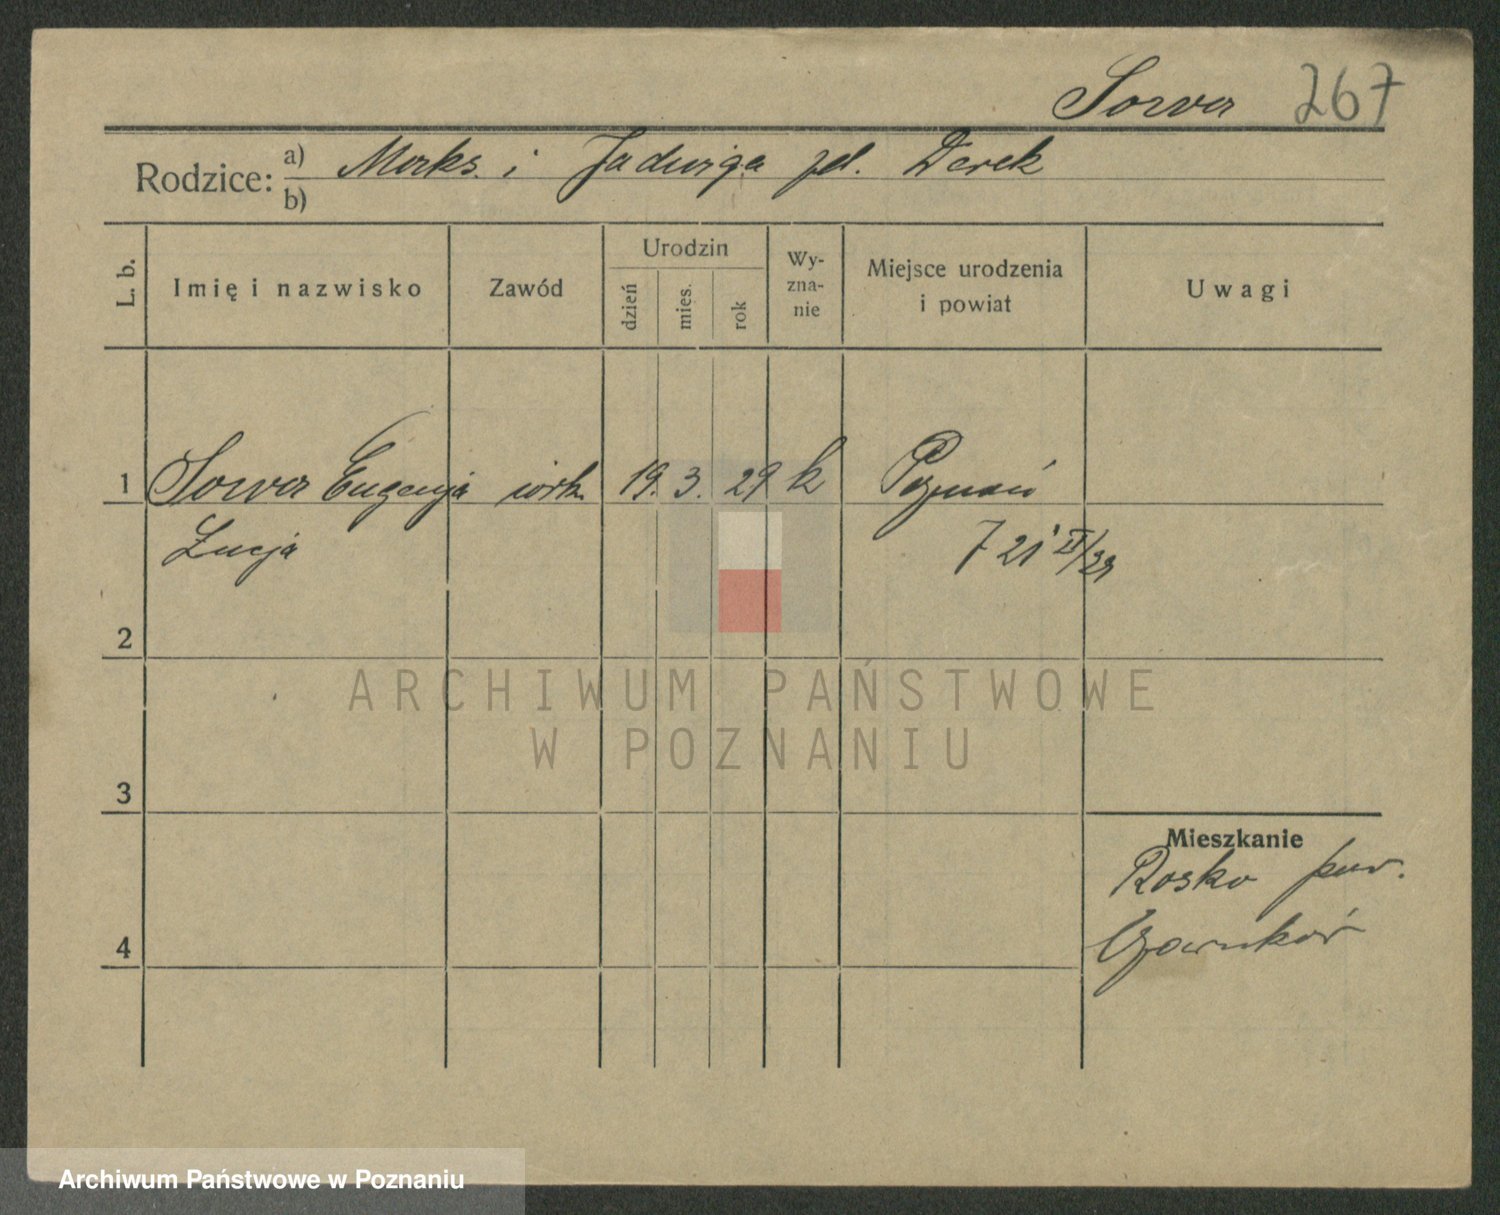 Sowa 267
Rodzice: a) Maks. i Jadwiga zd. Derek
b)
L. b. Imię i nazwisko Zawód Urodzin dzień mies. rok Wy-zna-nie Miejsce urodzenia i powiat Uwagi
1 Sowa Eugenja córk. 19. 3. 29 k Poznań
Łucja 21
2
ARCHIWUM PAŃSTWOWE
W POZNANIU
3
Mieszkanie
Rosko pow.
4 Czarnków
Archiwum Państwowe w Poznaniu